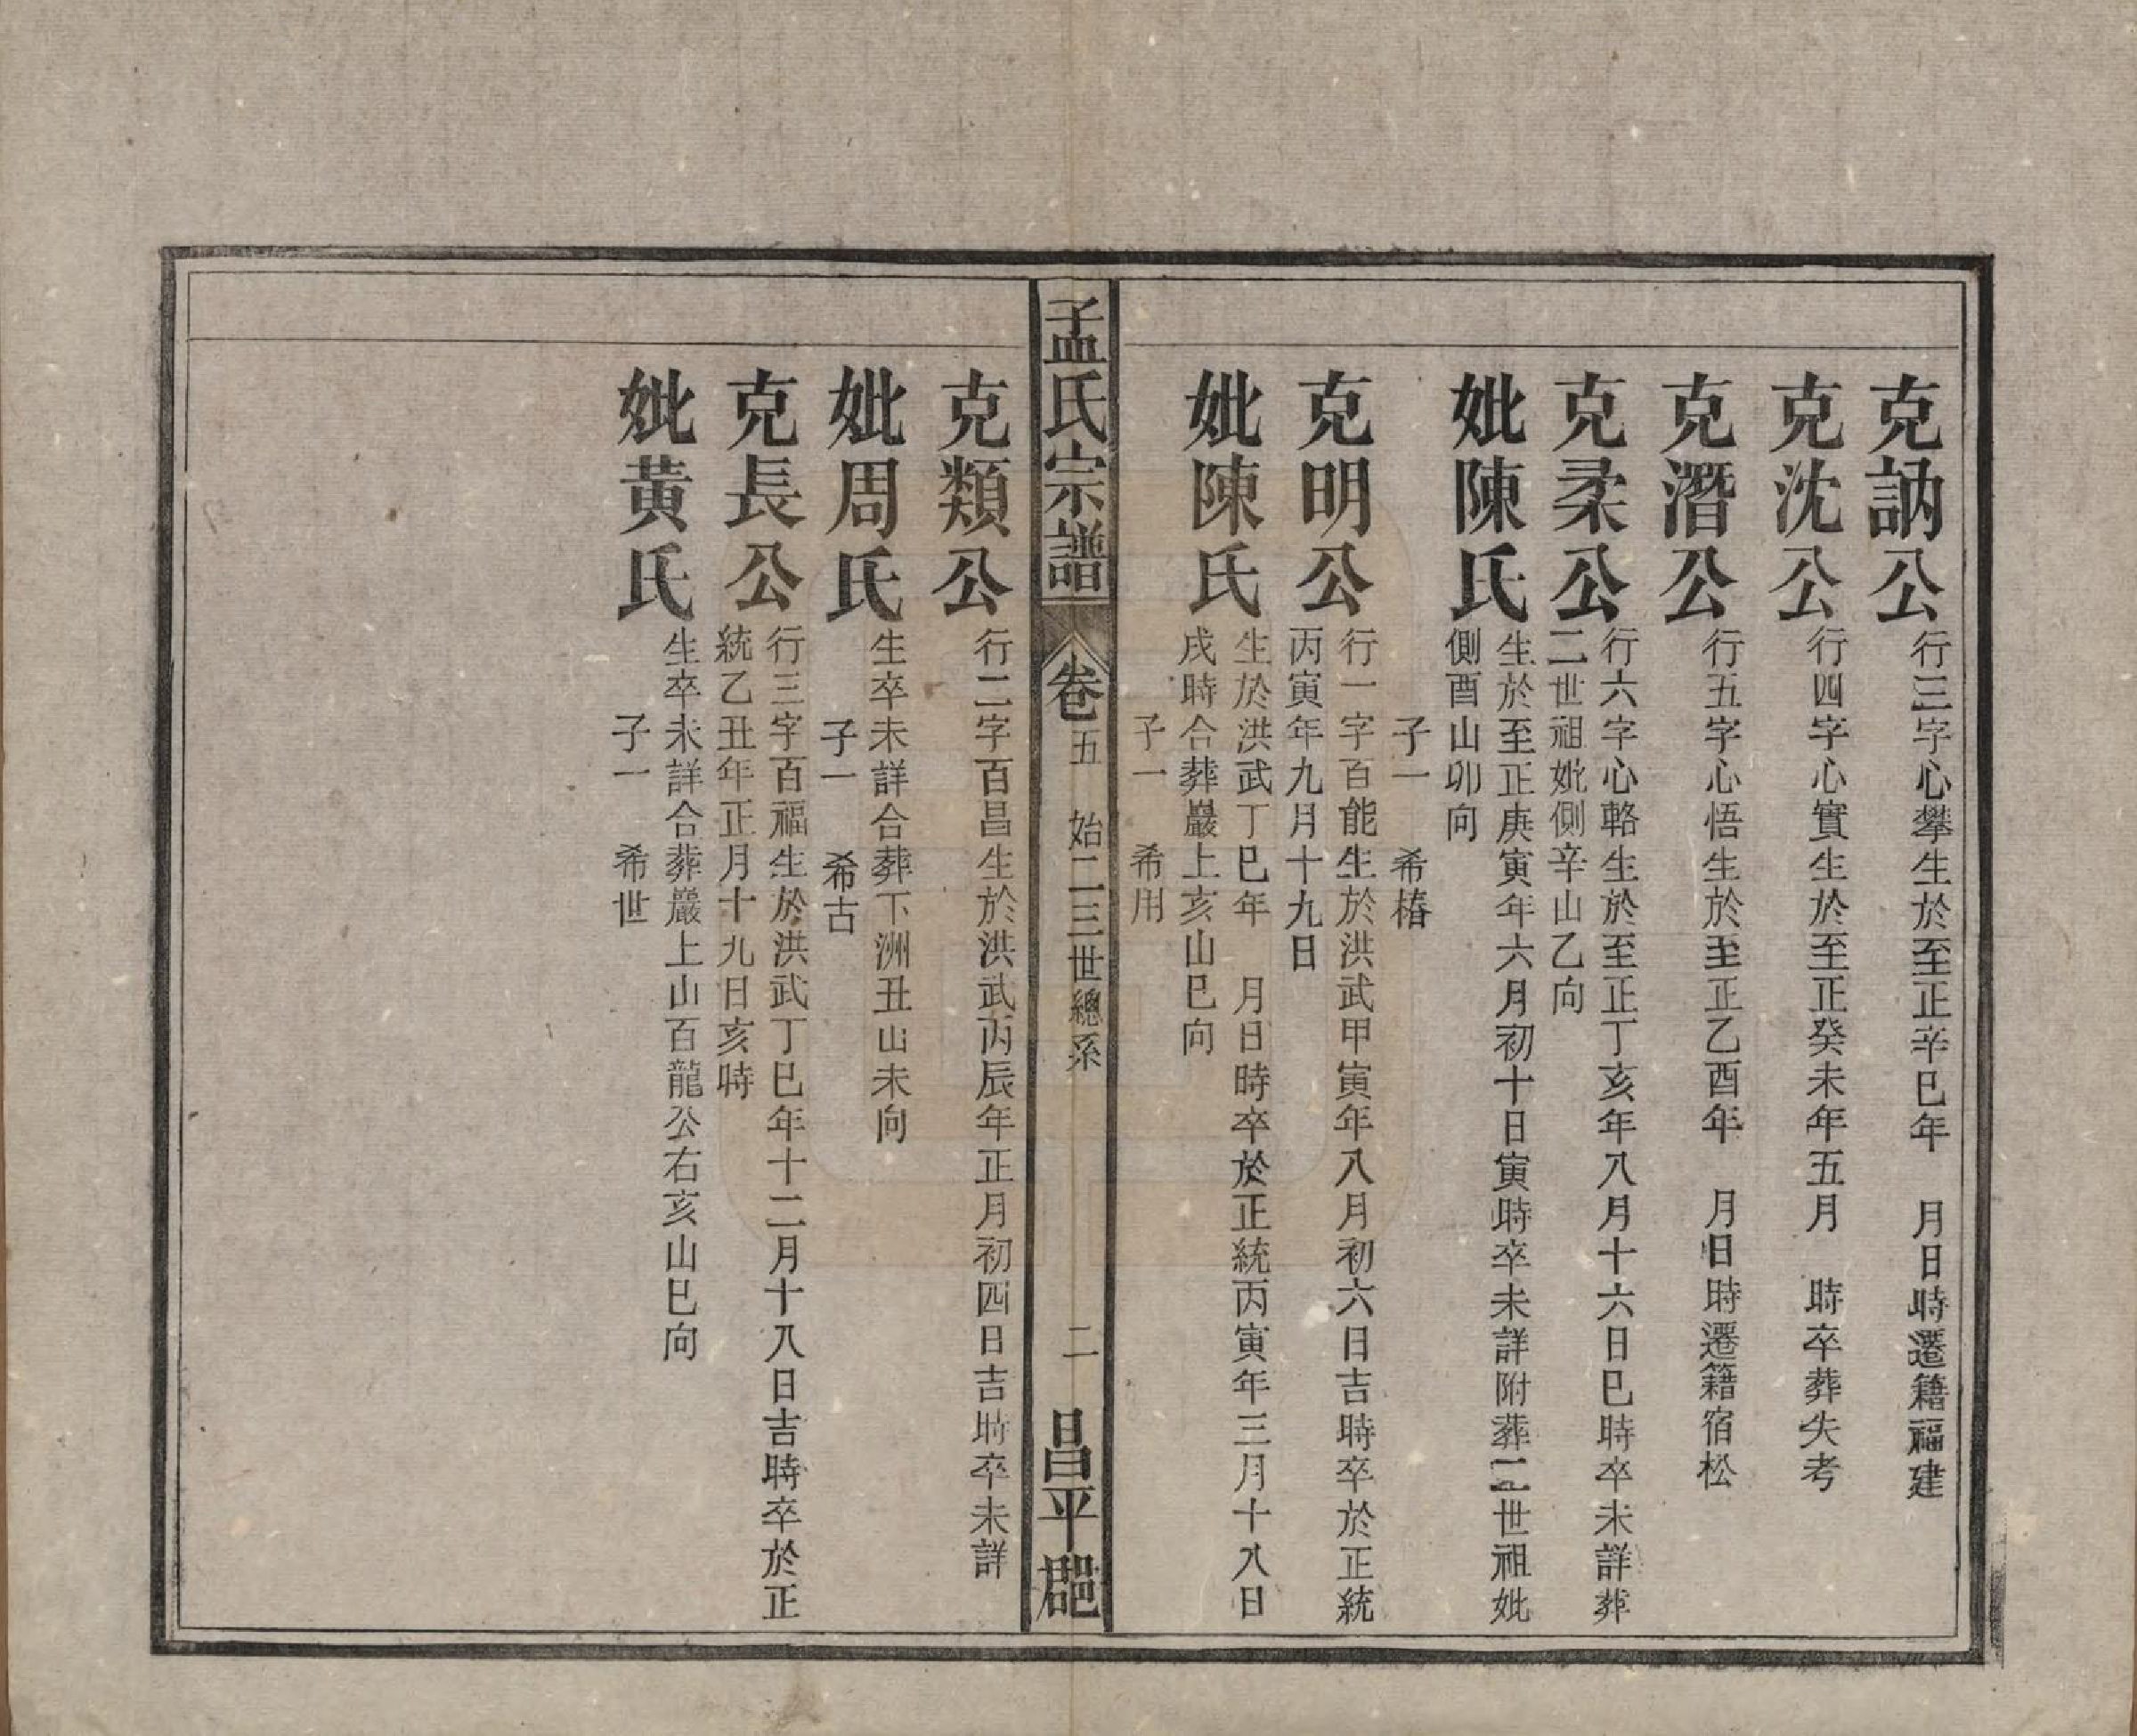 克訥公行三字心攀生於至正辛巳年　月日時遷籍福建
克沈公行四字心實生於至正癸未年五月　時卒葬失考
克潛公行五字心悟生於至正乙酉年　月日時遷籍宿松
克柔公行六字心輅生於至正丁亥年八月十六日巳時卒未詳葬
二世祖妣側辛山乙向
妣陳氏生於至正庚寅年六月初十日寅時卒未詳附葬二世祖妣
側酉山卯向
子一　希椿
克明公行一字百能生於洪武甲寅年八月初六日吉時卒於正統
丙寅年九月十九日
妣陳氏生於洪武丁巳年　月日時卒於正統丙寅年三月十八日
戌時合葬巖上亥山巳向
子一　希用
孟氏宗譜　卷五　始二三世總系　二　昌平郡
克類公行二字百昌生於洪武丙辰年正月初四日吉時卒未詳
妣周氏生卒未詳合葬下洲丑山未向
子一　希古
克長公行三字百福生於洪武丁巳年十二月十八日吉時卒於正
統乙丑年正月十九日亥時
妣黃氏生卒未詳合葬巖上山百龍公右亥山巳向
子一　希世